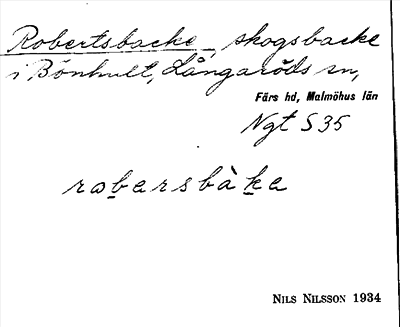 Robertsbacke, skogsbacke
i Bönhult, Långaröds sn,
Färs hd, Malmöhus län
Ngt S 35
robersbàka
NILS NILSSON 1934